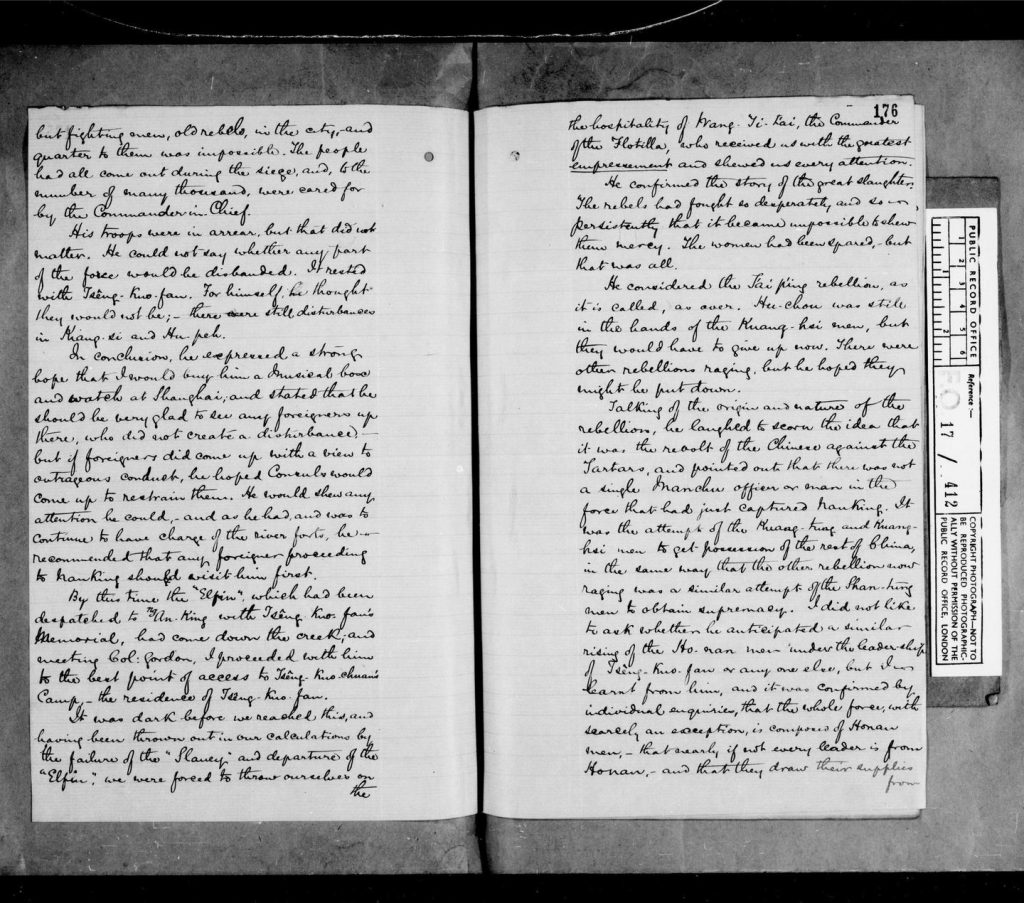 but fighting men, old rebels, in the city, and
quarter to them was impossible. The people
had all come out during the siege, and, to the
number of many thousand, were cared for
by the Commander in Chief.
His troops were in arrear, but that did not
matter. He could not say whether any part
of the force would be disbanded. It rested
with Tsêng-Kuo-fan. For himself, he thought
they would not be; – there were still disturbances
in Kiang-si and Hu-peh.
In conclusion, he expressed a strong
hope that I would buy him a musical box
and watch at Shanghai, and stated that he
should be very glad to see any foreigners up
there, who did not create a disturbance; –
but if foreigners did come up with a view to
outrageous conduct, he hoped Consuls would
come up to restrain them. He would shew any
attention he could, – and as he had, and was to
continue to have charge of the river forts, he
recommended that any foreigner proceeding
to Nanking should visit him first.
By this time the "Elfin", which had been
despatched to An-King with Tsêng-Kuo-fan's
Memorial, had come down the creek, and
meeting Col: Gordon, I proceeded with him
to the best point of access to Tsêng-Kuo-chuan's
Camp, – the residence of Tsêng-Kuo-fan.
It was dark before we reached this, and
having been thrown out in our calculations by
the failure of the "Slaney" and departure of the
"Elfin", we were forced to throw ourselves on
the
176
the hospitality of Wang-Yi-Kai, the Commander
of the Flotilla, who received us with the greatest
empressement and shewed us every attention.
He confirmed the story of the great slaughter.
The rebels had fought so desperately and so
persistently that it became impossible to shew
them mercy. The women had been spared, – but
that was all.
He considered the Tai p'ing rebellion, as
it is called, as over. Hu-chou was still
in the hands of the Kuang-hsi men, but
they would have to give up now. There were
other rebellions raging, but he hoped they
might be put down.
Talking of the origin and nature of the
rebellion, he laughed to scorn the idea that
it was the revolt of the Chinese against the
Tartars, and pointed out that there was not
a single Manchu officer or man in the
force that had just captured Nanking. It
was the attempt of the Kuang-tung and Kuang-
hsi men to get possession of the rest of China,
in the same way that the other rebellion now
raging was a similar attempt of the Shan-tung
men to obtain supremacy. I did not like
to ask whether he anticipated a similar
rising of the Ho-nan men under the leadership
of Tsêng-Kuo-fan or any one else, but I
learnt from him, and it was confirmed by
individual enquiries, that the whole force, with
scarcely an exception, is composed of Honan
men, – that nearly if not every leader is from
Honan, – and that they draw their supplies
from
PUBLIC RECORD OFFICE
1 2 3 4 5 6
1 2
Reference :—
FO 17 / 412
COPYRIGHT PHOTOGRAPH—NOT TO
BE REPRODUCED PHOTOGRAPHIC-
ALLY WITHOUT PERMISSION OF THE
PUBLIC RECORD OFFICE, LONDON